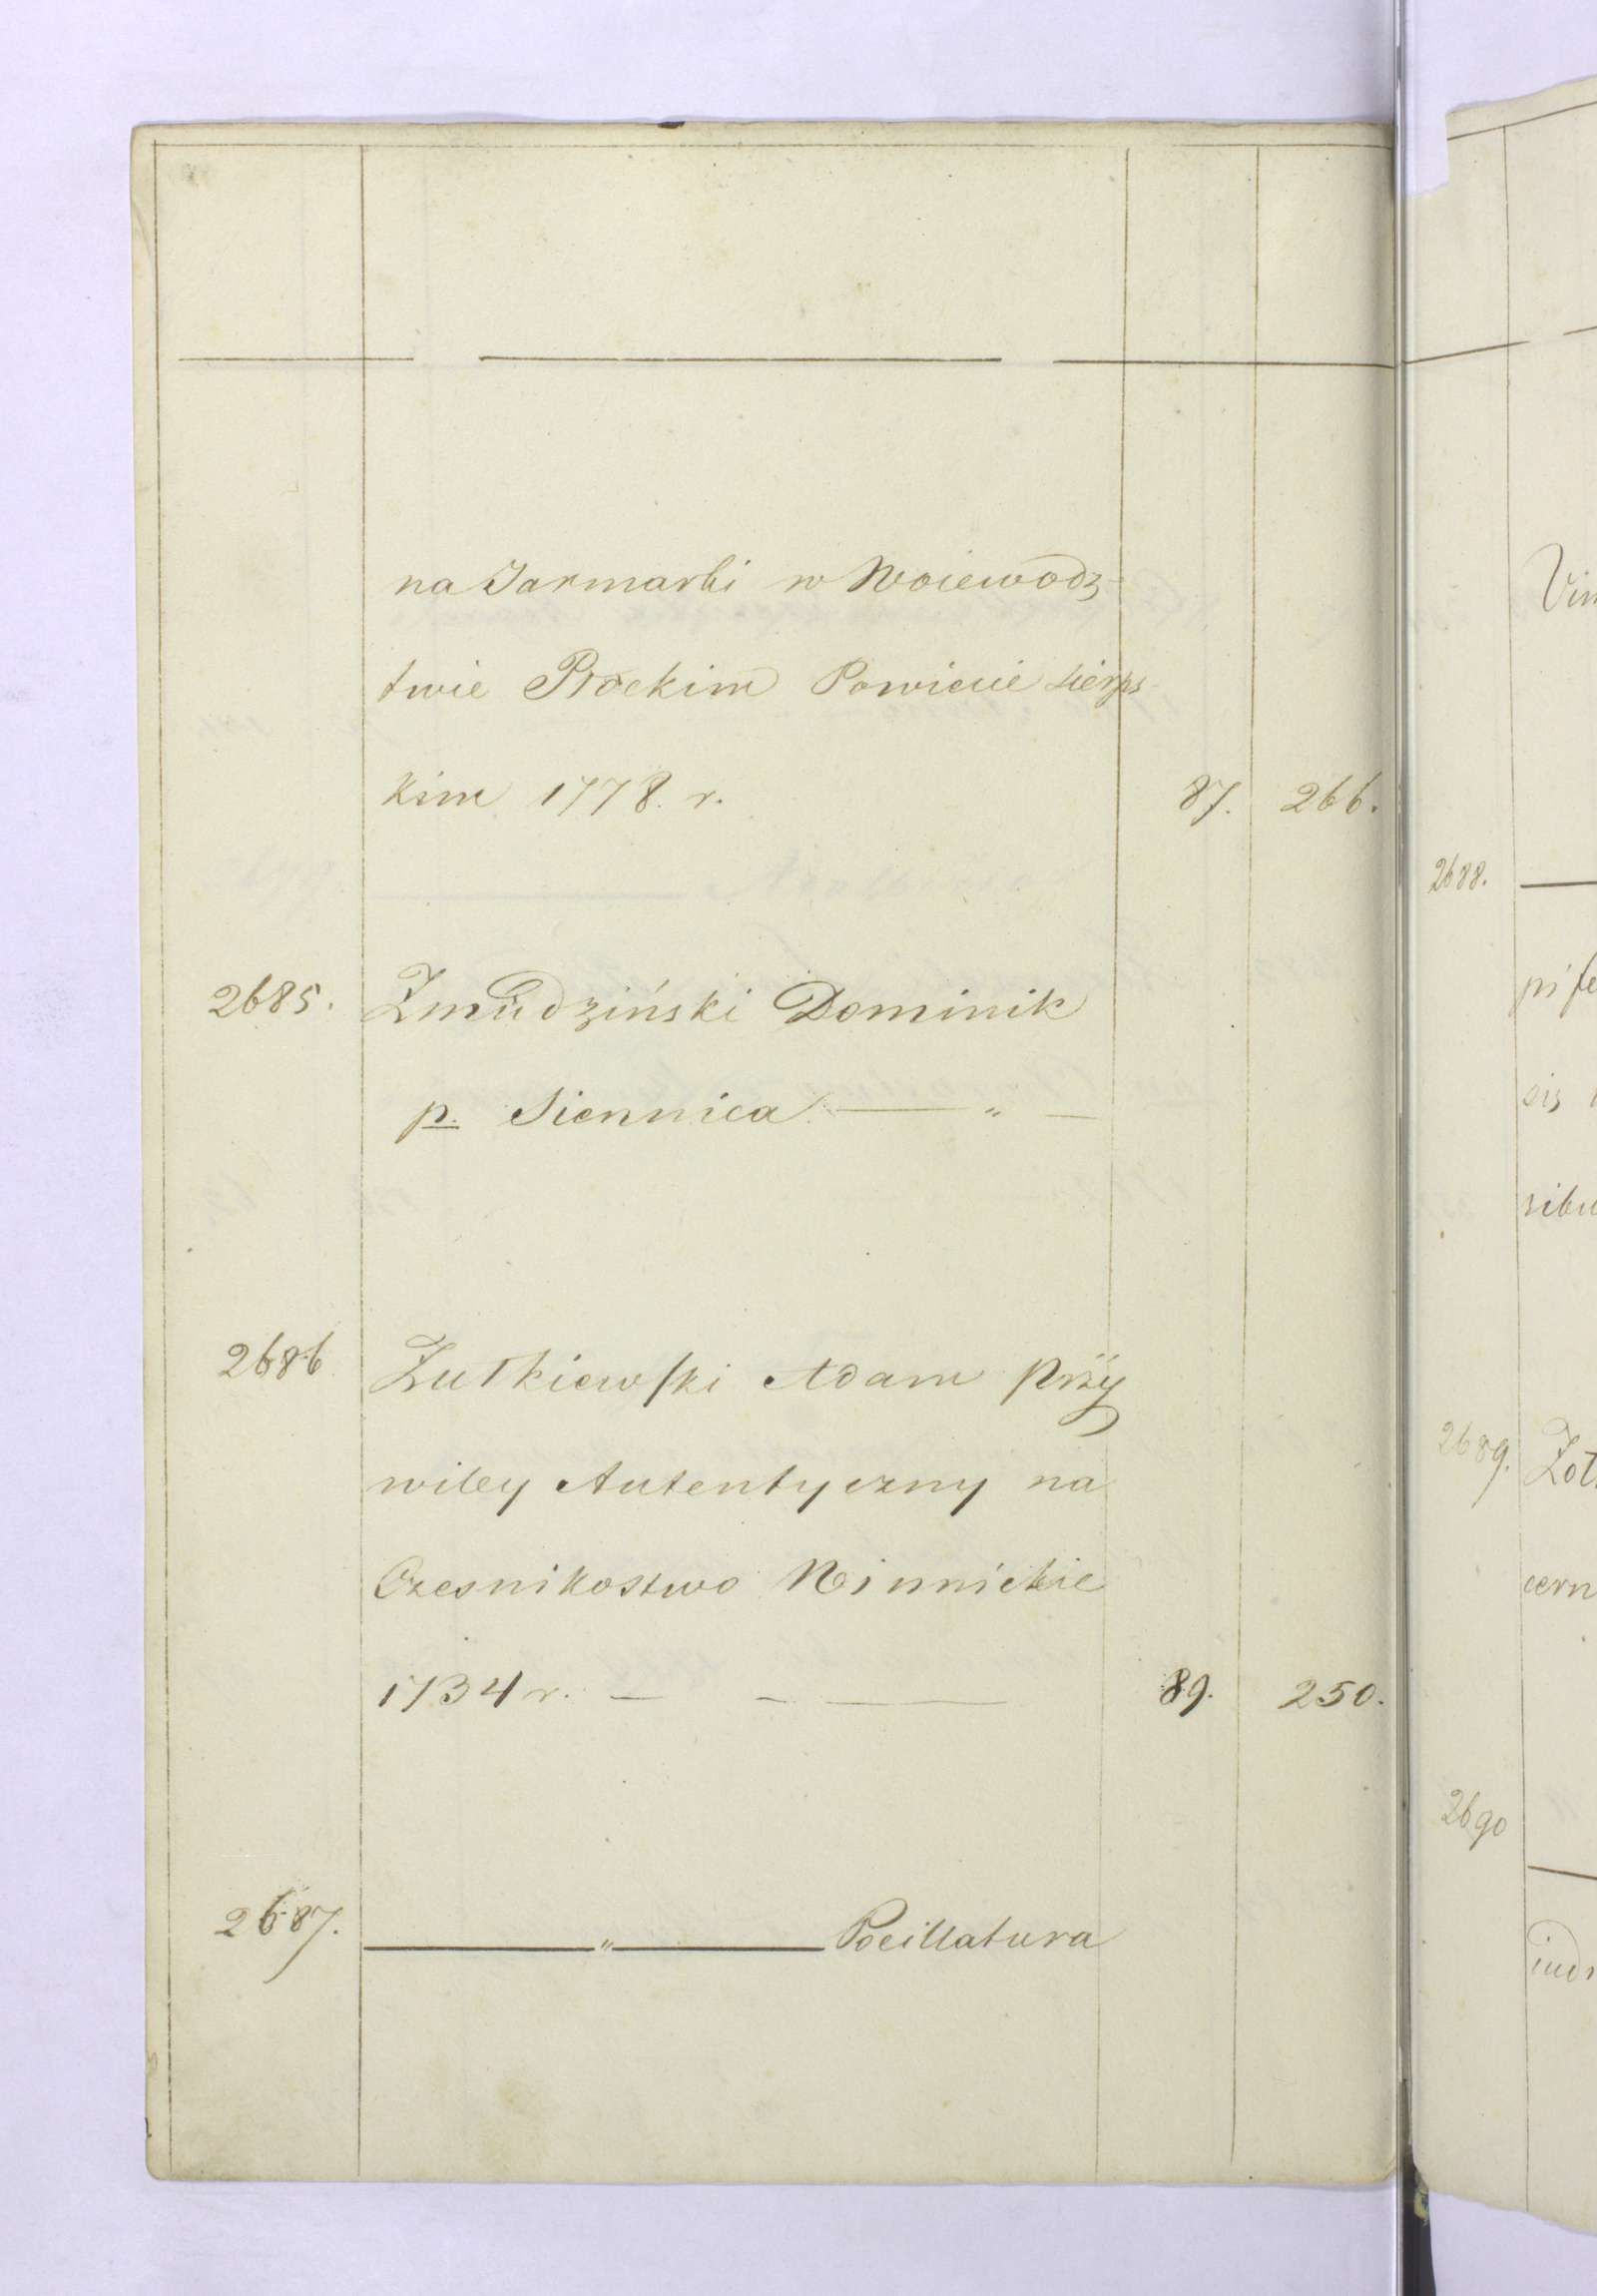 na Jarmarki w Woiewodz-
twie Płockim Powiecie Sierps-
kim 1778. r. 87. 266.
2685. Żmudziński Dominik
p. Siennica — „ —
2686 Żułkiewski Adam Przÿ
wiley Autentyczny na
Czesnikostwo Winnickie
1734 r. — — — 89. 250.
2687. — „ — Pocillatura
Vin
2688. —
pife
sis
sibu
2689. Żoł
cern
2690
—
iudi